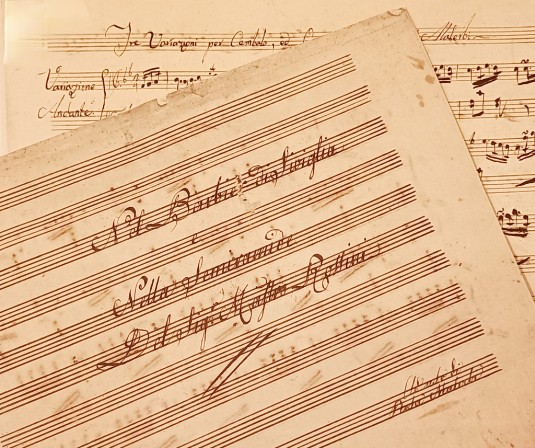 Tre Variazioni per Cembalo, ed
Malerbi
Variazione
Andante
Nel Barbier di Siviglia
e
Nella Semiramide
Del Sigr. Mastro Rossini